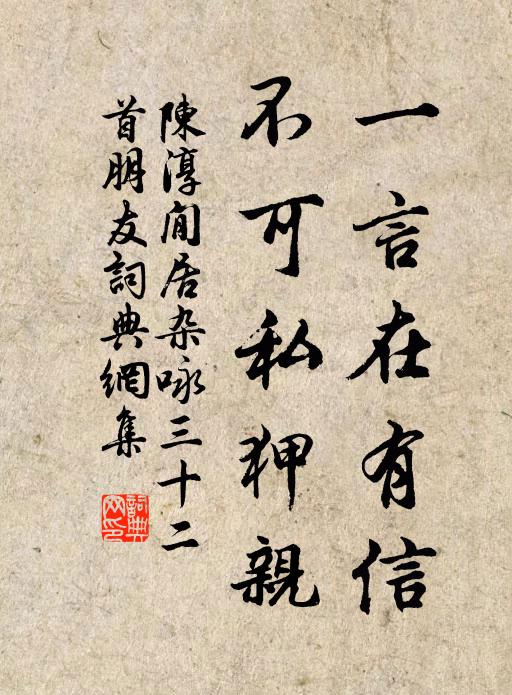 一言在有信
不可私狎親
陳淳閒居杂咏三十二
首朋友詞典網集
詞典网印